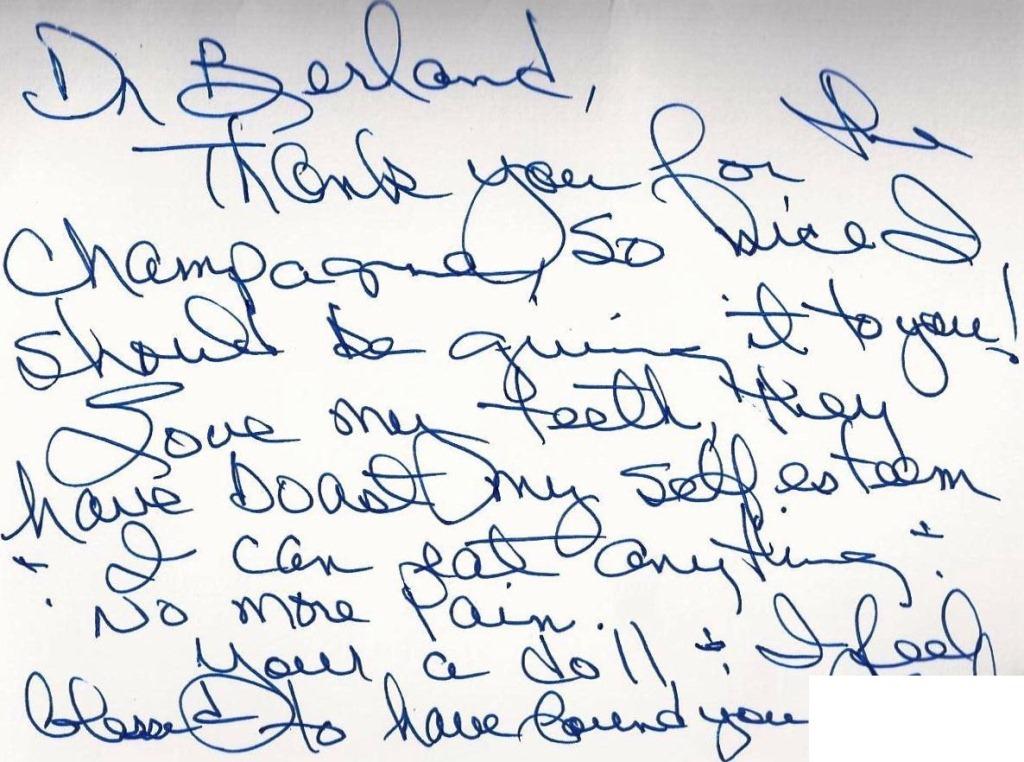 Dr Berland,
Thank you for the
Champagne, so nice I
should be giving it to you!
Love my teeth, they
have boast my self esteem
+ I can eat anything +
No more Pain.
Your a doll + I feel
blessed to have found you